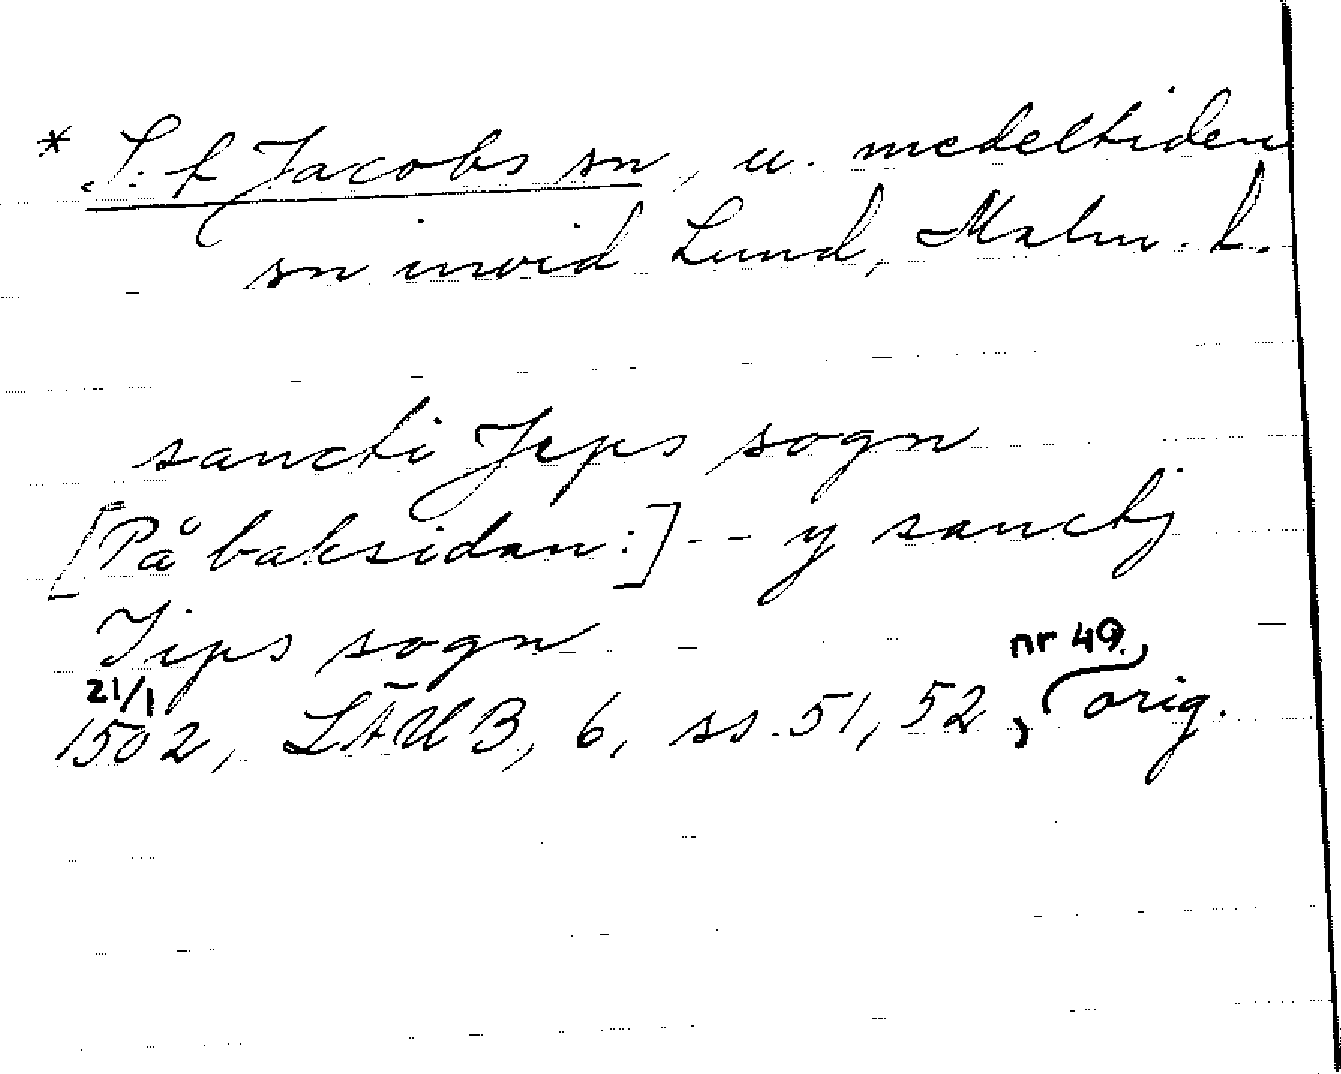 * S:t Jacobs sn, u. medeltiden
sn invid Lund, Malm. l.
sancti Jeps sogn
[På baksidan:] -- y sanctj
Jips sogn
21/1 nr 49.
1502, LÄUB, 6, ss. 51, 52, orig.